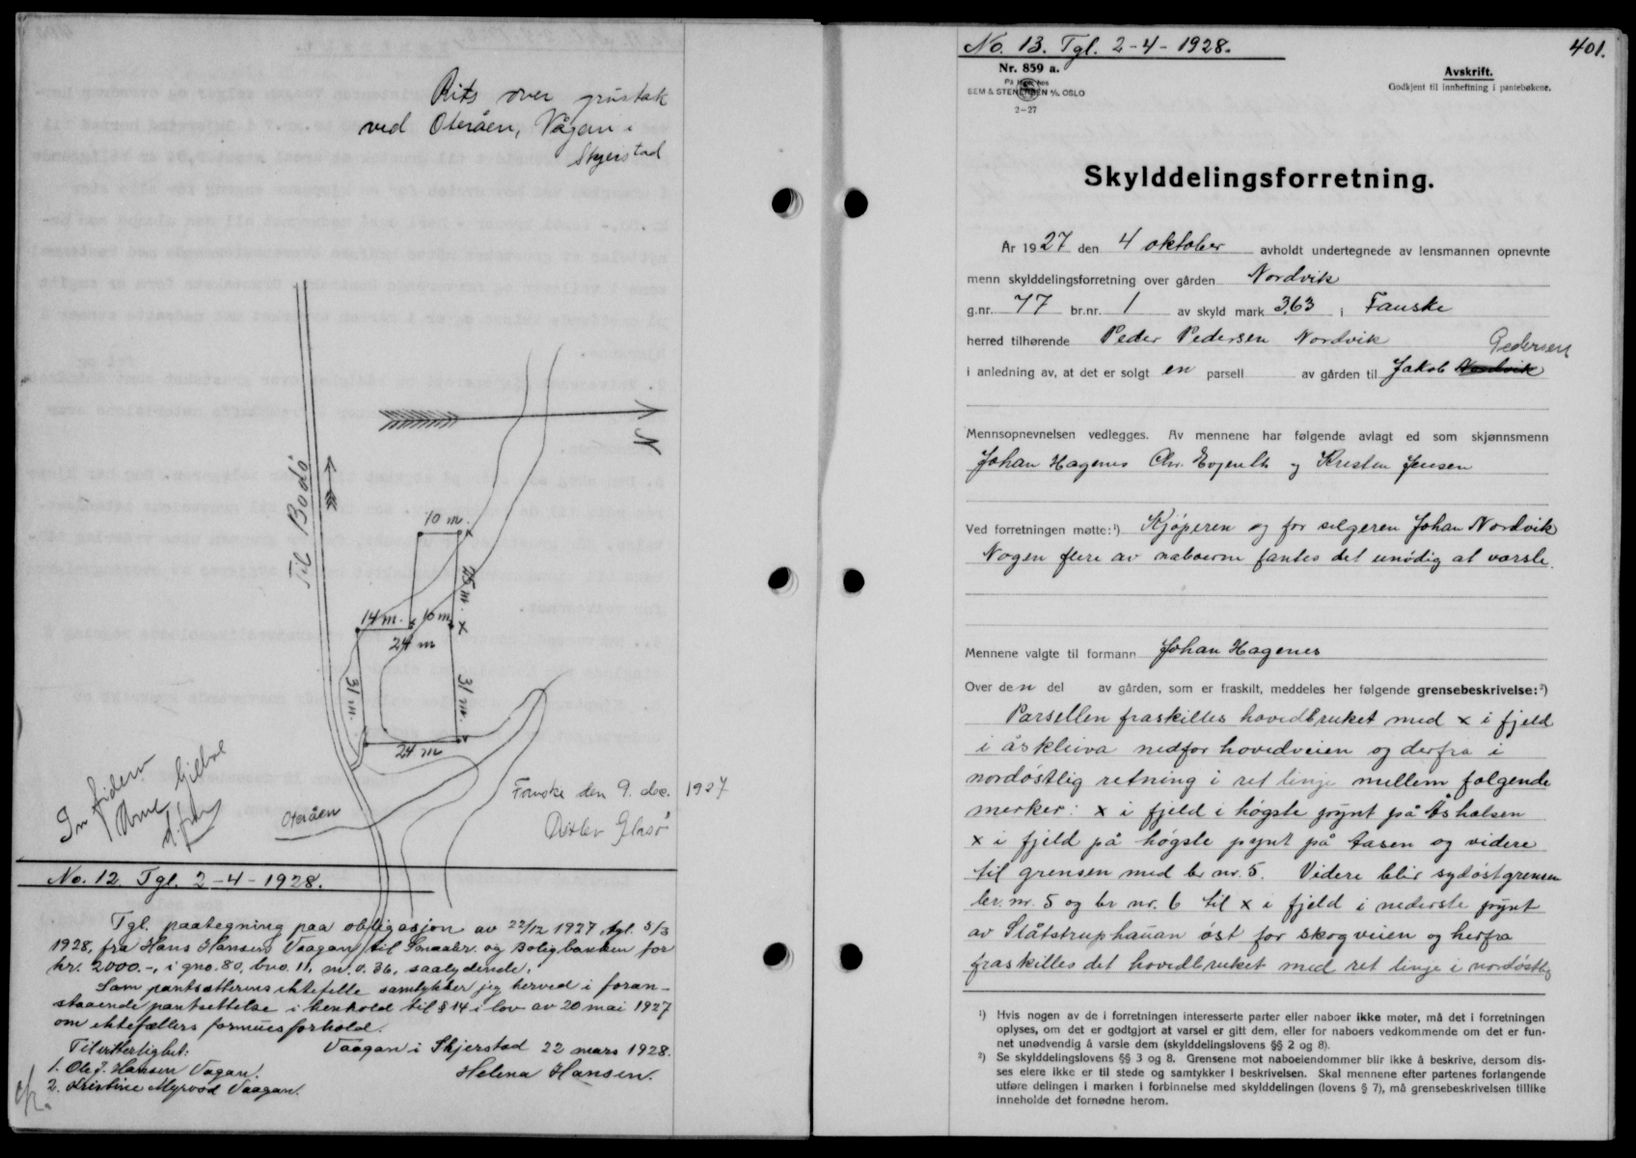 Rits over grustak
ved Oteråen, Vågan i
Skjerstad
Til Bodö
N
10 m.
25 m.
14 m. 10 m
24 m
31 m.
31 m.
24 m
Oteråen
Fauske den 9. des. 1927
Ditlev
In fidem
No. 12. Tgl. 2-4-1928.
Tgl. paategning paa obligasjon av 22/12 1927, tgl. 5/3
1928, fra Hans Hansen Vaagan, til Smaabr. og Boligbanken for
kr. 2000.-, i gno. 80, bno. 11, m. v. 36, saalydende:
Som pantsætterens ektefelle samtykker jeg herved i foran-
staaende pantsettelse i henhold til § 14 i lov av 20 mai 1927
om ektefællers formuesforhold.
Vaagan i Skjerstad 22 mars 1928.
Til vitterlighet:
Helena Hansen.
1. Ole J. Hansen Vagan.
2. Kristine Myrvod Vaagan.
No. 13. Tgl. 2-4-1928.
401.
Nr. 859 a.
SEM & STENERSEN A/S OSLO
2-27
Avskrift.
Godkjent til innheftning i pantebøkene.
Skylddelingsforretning.
År 1927 den 4 oktober avholdt undertegnede av lensmannen opnevnte
menn skylddelingsforretning over gården Nordvik
g.nr. 77 br.nr. 1 av skyld mark 3,63 i Fauske
herred tilhørende Peder Pedersen Nordvik
Pedersen
i anledning av, at det er solgt en parsell av gården til Jakob Nordvik
Mennsopnevnelsen vedlegges. Av mennene har følgende avlagt ed som skjønnsmenn
Johan Hagenes Chr. Evjenth og Kristen Jensen
Ved forretningen møtte:¹) Kjøperen og for selgeren Johan Nordvik
Nogen flere av naboerne fantes det unødig at varsle.
Mennene valgte til formann Johan Hagenes
Over den del av gården, som er fraskilt, meddeles her følgende grensebeskrivelse:²)
Parsellen fraskilles hovedbruket med x i fjeld
i åskleiva nedfor hovedveien og derfra i
nordøstlig retning i ret linje mellem følgende
merker: x i fjeld i høgste pynt på Åshalsen
x i fjeld på høgste pynt på åasen og videre
til grensen med br nr. 5. Videre blir sydøstgrensen
br. nr. 5 og br nr. 6 til x i fjeld i nederste pynt
av Slåtstruphauan øst for skogveien og herfra
fraskilles det hovedbruket med ret linje i nordøstlig
¹) Hvis nogen av de i forretningen interesserte parter eller naboer ikke møter, må det i forretningen
oplyses, om det er godtgjort at varsel er gitt dem, eller for naboers vedkommende om det er fun-
net unødvendig å varsle dem (skylddelingslovens §§ 2 og 8).
²) Se skylddelingslovens §§ 3 og 8. Grensene mot naboeiendommer blir ikke å beskrive, dersom dis-
ses eiere ikke er til stede og samtykker i beskrivelsen. Skal mennene efter partenes forlangende
utføre delingen i marken i forbinnelse med skylddelingen (lovens § 7), må grensebeskrivelsen tillike
inneholde det fornødne herom.